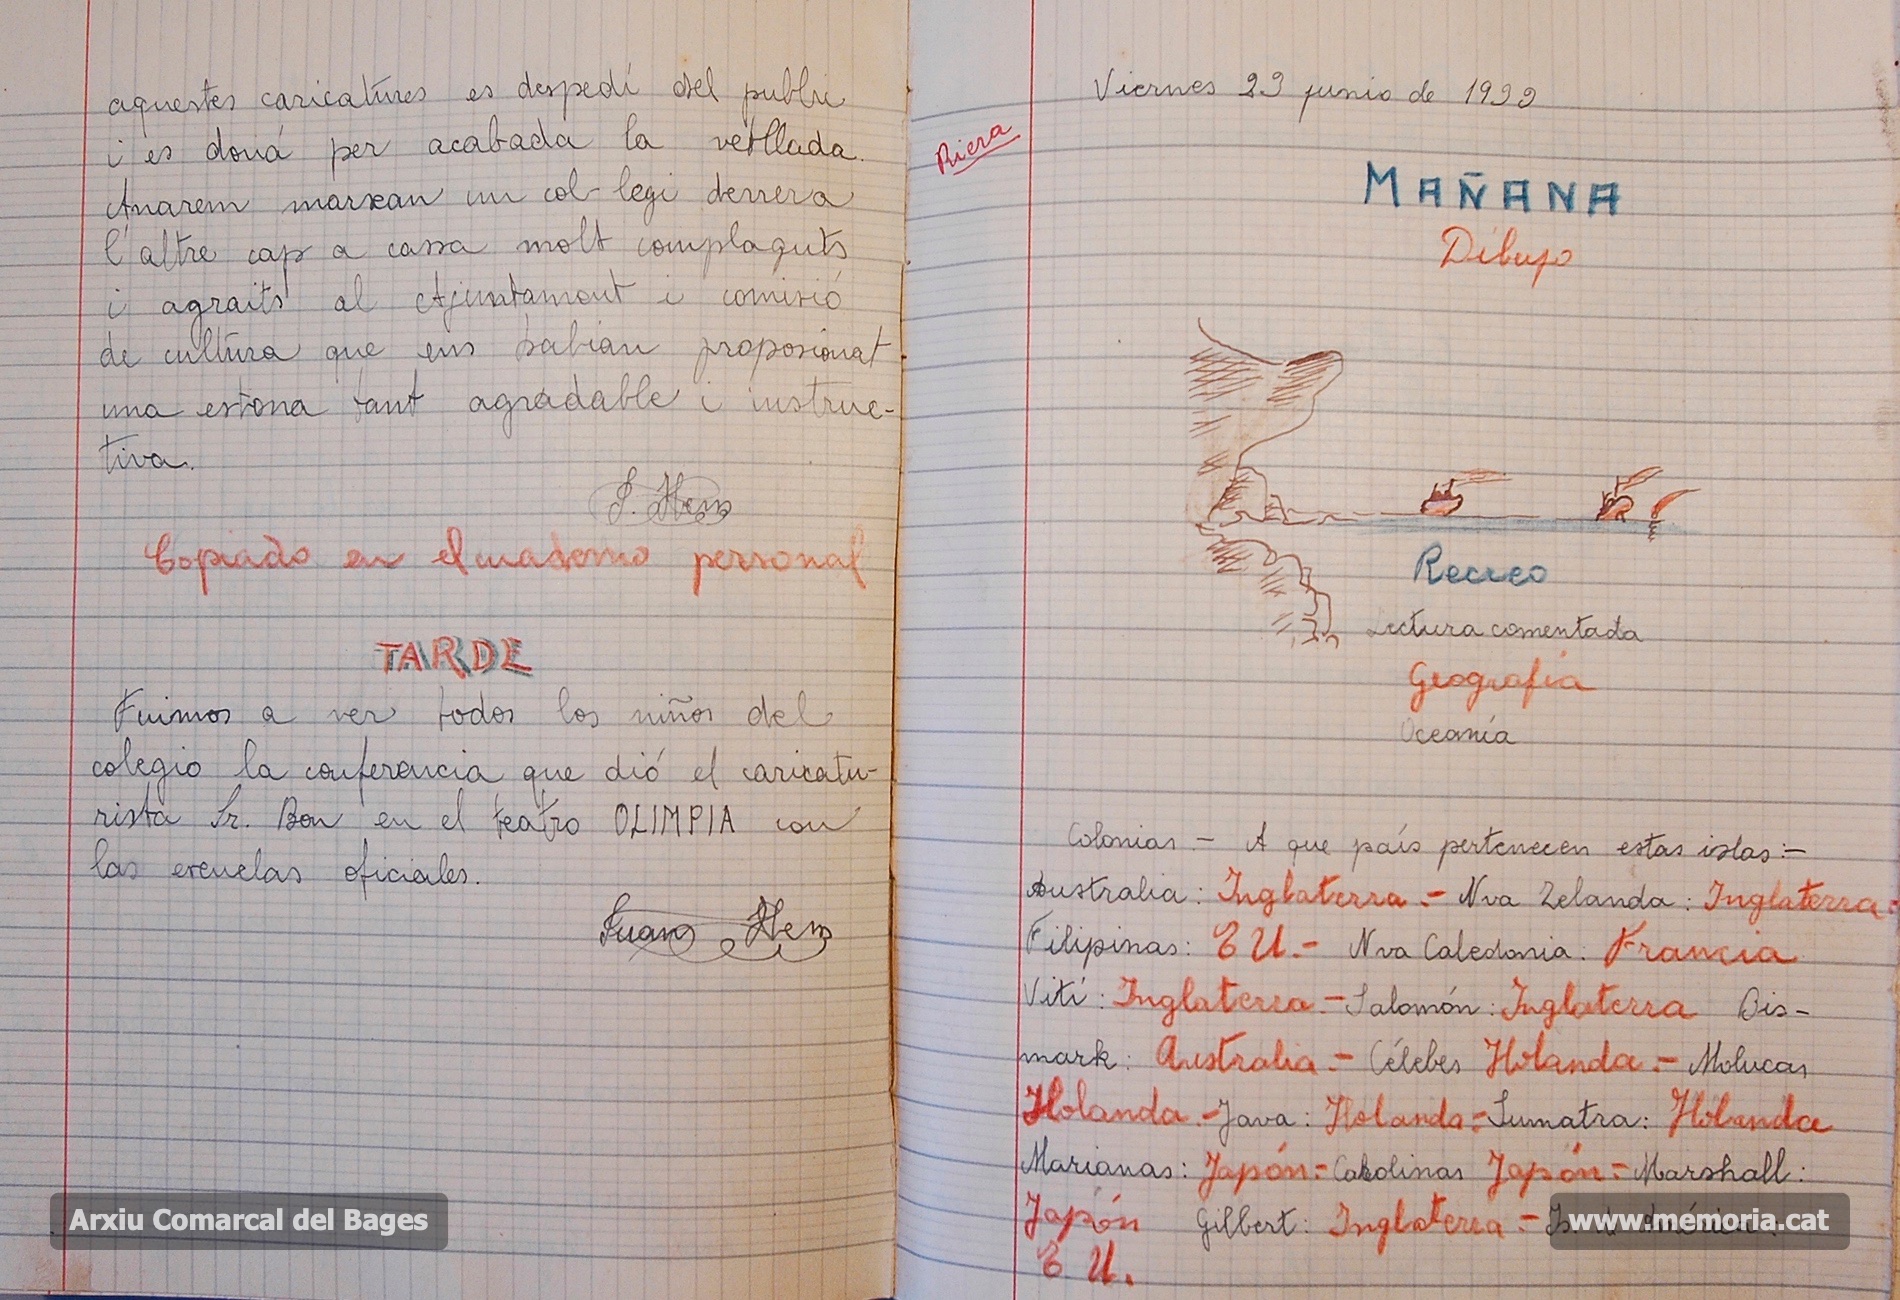 aquestes caricatures es despedí del public
i es doná per acabada la vetllada.
Anarem marxan un col-legi derrera
l'altre cap a cassa molt complaguts
i agraits al Ajuntament i comisió
de cultura que ens habian proposionat
una estona tant agradable i instruc-
tiva.
Copiado en el cuaderno personal
TARDE
Fuimos a ver todos los niños del
colegio la conferencia que dió el caricatu-
rista Sr. Bon en el teatro OLIMPIA con
las escuelas oficiales.
Juan
Riera
Viernes 23 junio de 1933
MAÑANA
Dibujo
Recreo
Lectura comentada
Geografía
Oceanía
Colonias - A que país pertenecen estas islas:-
Australia: Inglaterra.- Nva Zelanda: Inglaterra.-
Filipinas: E U.- Nva Caledonia: Francia
Vití: Inglaterra.- Salomón: Inglaterra Bis-
mark: Australia.- Célebes Holanda.- Molucas
Holanda.- Java: Holanda.- Sumatra: Holanda
Marianas: Japón.- Carolinas Japón.- Marshall:
Japón Gilbert: Inglaterra.-
E U.
Arxiu Comarcal del Bages
www.memoria.cat